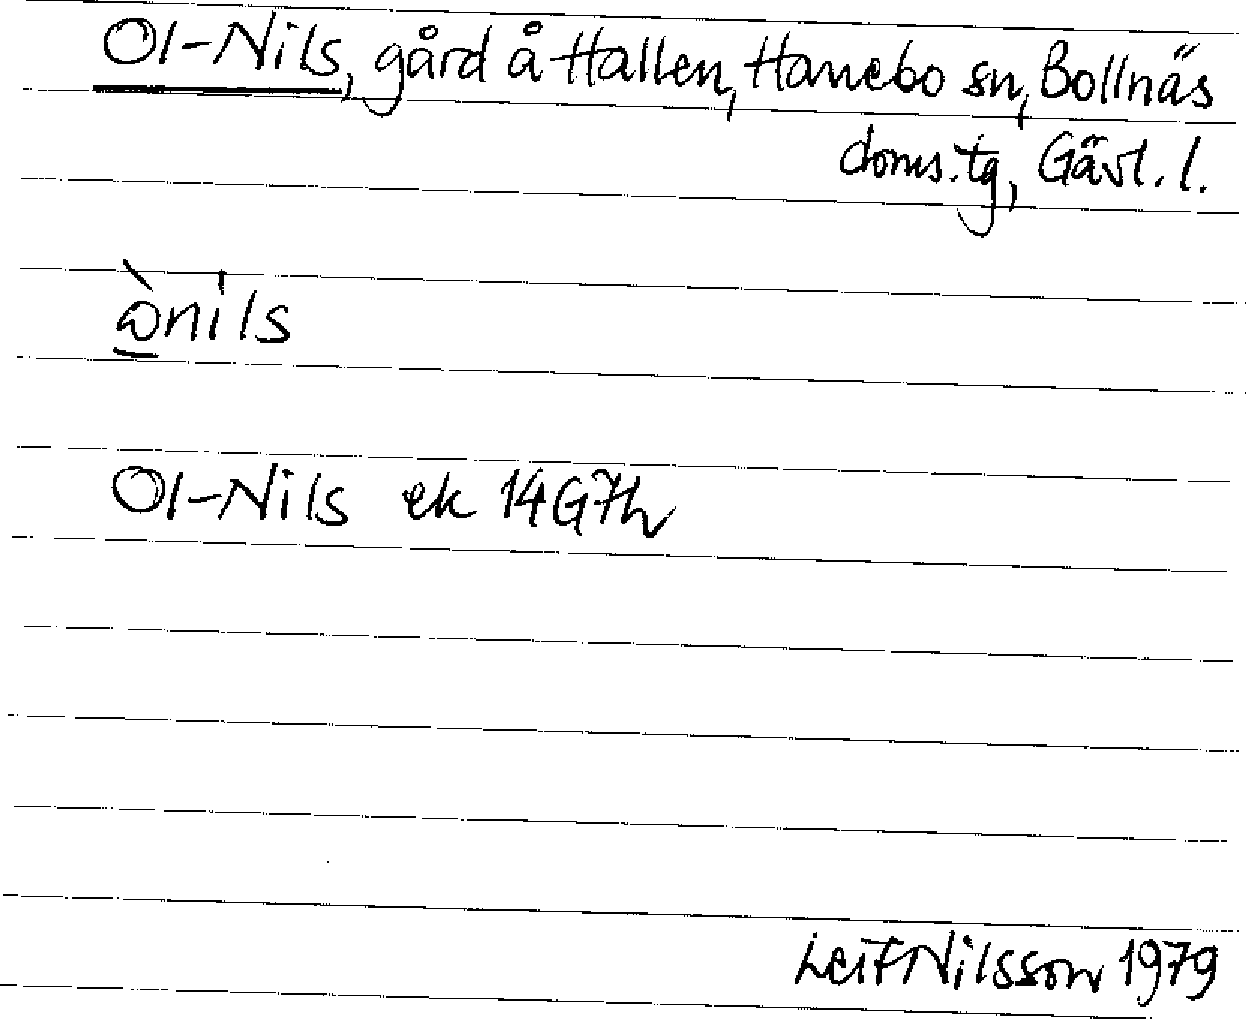 Ol-Nils, gård å Hallen, Hanebo sn, Bollnäs
doms.tg, Gävl. l.
ὼnils
Ol-Nils ek 14G7h
Leif Nilsson 1979